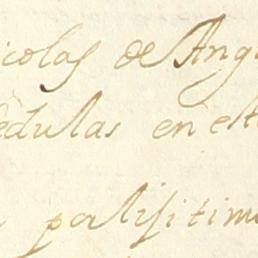 icolas de Ang
edulas en est
por lisitimo